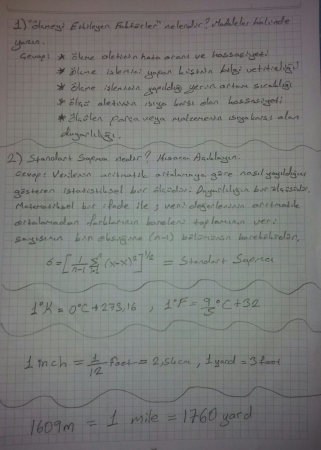 1) "Ölçmeyi Etkileyen Faktörler" nelerdir? Maddeler halinde
yazın.
Cevap: * Ölçme aletinin hata oranı ve hassasiyeti
* Ölçme işlemini yapan kişinin bilgi yetirliliği
* Ölçme işleminin yapıldığı yerin ortam sıcaklığı
* Ölçü aletinin ısıya karşı olan hassasiyeti
* Ölçülen parça veya malzemenin ısıya karşı olan
duyarlılığı.
2) Standart Sapma nedir? Kısaca Açıklayın.
Cevap: Verilerin aritmetik ortalamaya göre nasıl yayıldığını
gösteren istatistiksel bir ölçüdür. Duyarlılığın bir ölçüsüdür.
Matematiksel bir ifade ile; veri değerlerinin aritmetik
ortalamadan farklarının kareleri toplamının veri
sayısının bir eksiğine (n-1) bölümünün kareköküdür.
σ = [1/(n-1) Σ (x-x̄)²]^1/2 = Standart Sapma
1°K = 0°C + 273,16 , 1°F = 9/5 °C + 32
1 inch = 1/12 foot = 2,54 cm, 1 yard = 3 foot
1609m = 1 mile = 1760 yard